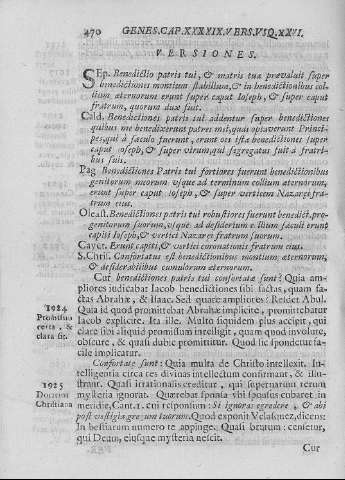 470 GENES.CAP.XXXXIX.VERS.VSQ.XXVI.
VERSIONES.
SEp. Benedictio patris tui, & matris tuæ prævaluit super
benedictiones montium stabilium, & in benedictionibus col-
lium æternorum erunt super caput Ioseph, & super caput
fratrum, quorum dux fuit.
Cald. Benedictiones patris tui addentur super benedictiones
quibus me benedixerunt patres mei, quas optaverunt Princi-
pes, qui à sæculo fuerunt, erunt oēs istæ benedictiones super
caput Ioseph, & super virum, qui segregatus fuit à fratri-
bus suis.
Pag. Benedictiones Patris tui fortiores fuerunt benedictionibus
genitorum meorum usque ad terminum collium æternorum,
erunt super caput Ioseph, & super verticem Nazaræi fra-
trum eius.
Oleast. Benedictiones patris tui robustiores fuerunt benedict. pro-
genitorum suorum, usque ad desiderium collium sæculi erunt
capiti Ioseph, & vertici Nazaræi fratrum suorum.
Cayet. Erunt capiti, & vertici coronationis fratrum eius.
S. Chris. Confortatus est benedictionibus montium æternorum,
& desiderabilibus cumulorum æternorum.
Cur benedictiones patris tui confortatæ sunt? Quia am-
pliores iudicabat Iacob benedictiones sibi factas, quam fa-
ctas Abrahæ, & Isaac. Sed quare ampliores? Respōdet Abul.
1924 Quia id quod promittebat Abrahæ implicite, promittebatur
Promissio Iacob explicite. Ita ille. Multo siquidem plus accipit, qui
certa, & clare sibi aliquid promissum intelligit, quam quod involute,
clara sit. obscure, & quasi dubie promittitur. Quod hic spondetur fa-
cile implicatur.
Confortatæ sunt: Quia multa de Christo intellexit. In-
telligentia circa res divinas intellectum confirmat, & illu-
1925 strat. Quasi irrationalis creditur, qui supernarum rerum
Doctrina mysteria ignorat. Quærebat sponsa ubi sponsus cubaret in
Christiana meridie, Cant. 1. cui responsum: Si ignoras egredere, & abi
post vestigia gregum tuorum. Quod exponit Velasquez, dicens:
In bestiarum numero te appinge. Quasi brutum censetur,
qui Deum, eiusque mysteria nescit.
Cur